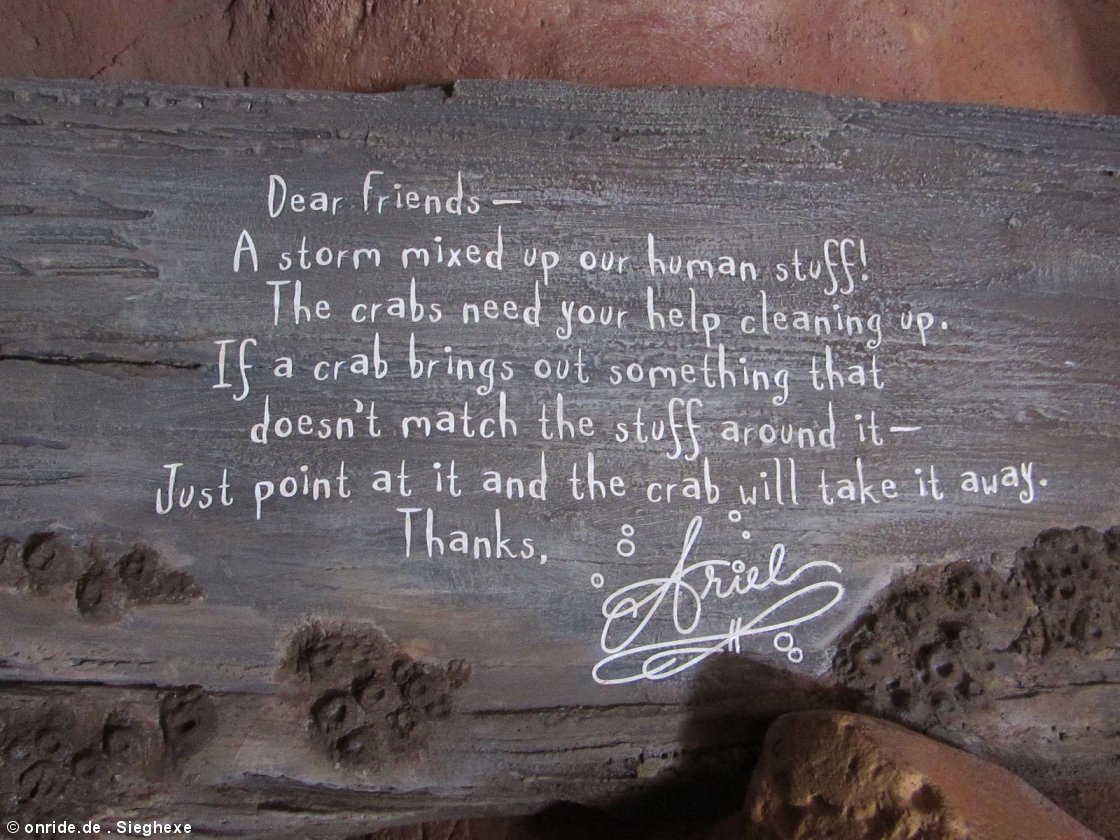 Dear friends –
A storm mixed up our human stuff!
The crabs need your help cleaning up.
If a crab brings out something that
doesn't match the stuff around it –
Just point at it and the crab will take it away.
Thanks,
Ariel
© onride.de . Sieghexe